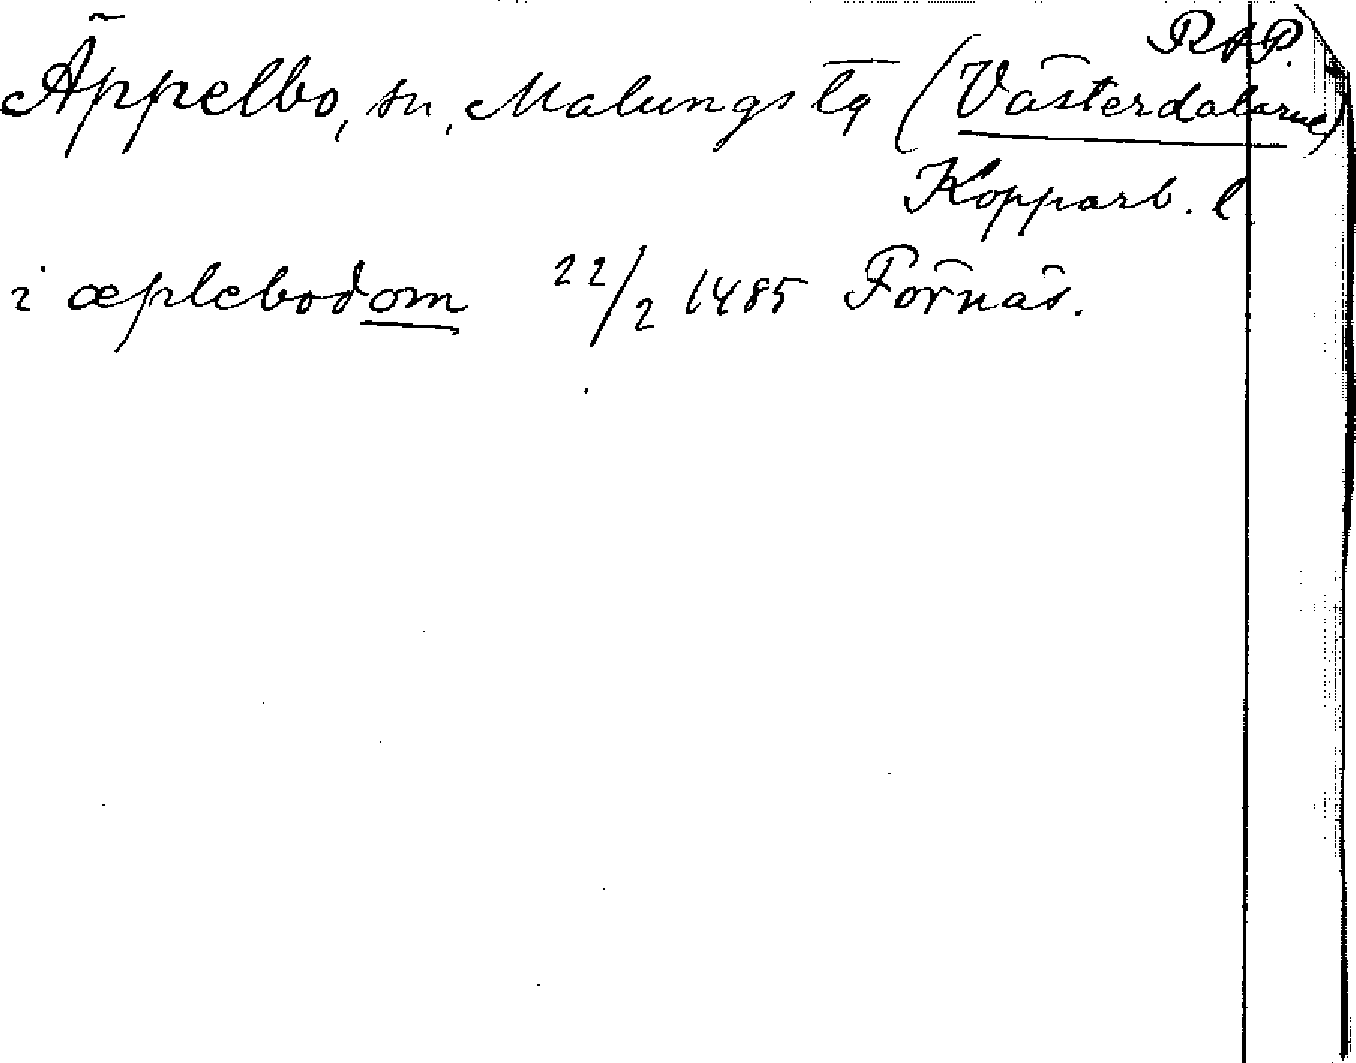 RAP.
Äppelbo, sn, Malungs tg (Västerdalarne)
Kopparb. l
i æplebodom 22/2 1485 Fornäs.